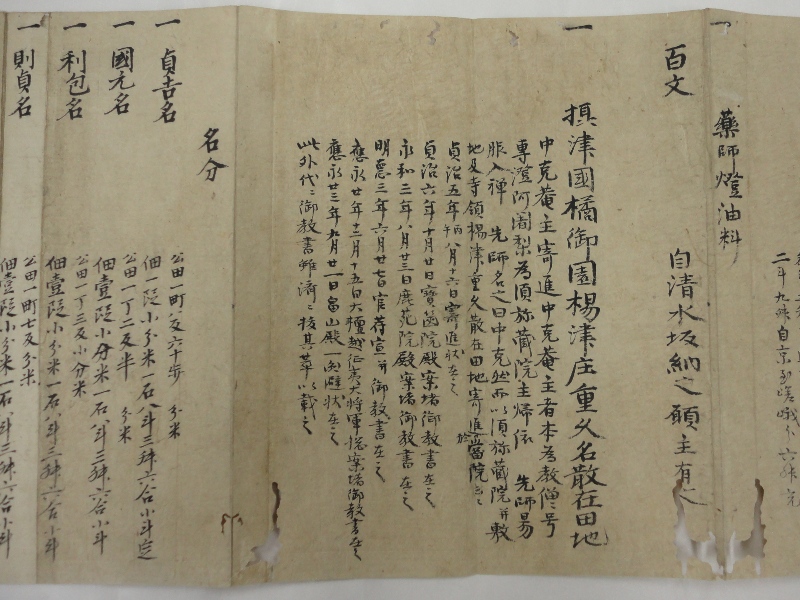 二斗九升自京
一
藥師燈油料
百文
自清水坂納之願主有之
一
摂津國橘御園楊津庄重久名散在田地
中克菴主寄進中克菴主者本為教僧号
専澄阿闍梨為須弥蔵院主帰依 先師易
服入禅 先師名之曰中克然而以須弥蔵院并敷
地及寺領楊津重久散在田地寄進於當院云々
貞治五年丙午八月十六日寄進状在之
貞治六年十月廿日寶篋院殿案堵御教書在之
永和二年八月廿三日鹿苑院殿案堵御教書在之
明徳三年六月廿七日官符宣并御教書在之
應永廿年十二月十五日大檀越征夷大将軍案堵御教書在之
應永廿三年九月廿一日畠山殿避状在之
此外代々御教書雖済々接其草以載之
名分
一 貞吉名
公田一町八反六十歩 分米
佃一段小分米一石八斗三升六合小斗定
一 國元名
公田一丁二反半 分米
佃壹段小分米一石八斗三升六合小斗
一 利包名
公田一丁三反小分米
佃壹段小分米一石八斗三升六合小斗
一 則貞名
公田一町七反分米
佃壹段小分米一石八斗三升六合小斗